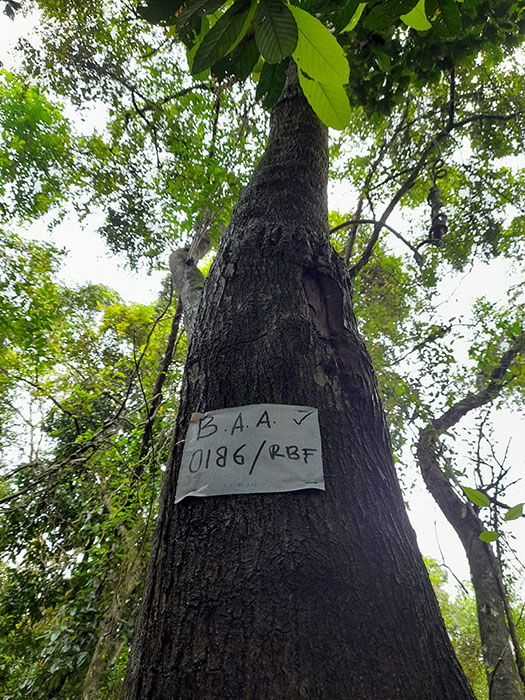 B.A.A. ✓
0186/RBF